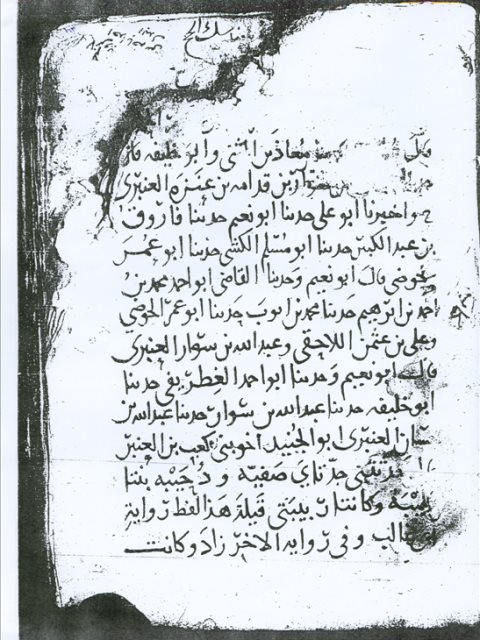 مناسك الحج
قال معاذ بن المثنى وأبو خليفه قالا
بن قدامه بن عنزه العنبرى
ح واخبرنا ابو على حدثنا ابو نعيم حدثنا فاروق
بن عبد الكبير حدثنا ابو مسلم الكشى حدثنا ابو عمر
الحوضى قال ابو نعيم وحدثنا القاضى ابو احمد محمد بن
احمد بن ابرهيم حدثنا محمد بن ايوب حدثنا ابو عمر الحوضي
وعلى بن عثمن اللاحقى وعبد الله بن سوار العنبرى
قال ابو نعيم وحدثنا ابو احمد الغطريفى حدثنا
ابو خليفه حدثنا عبد الله بن سوار حدثنا عبد الله بن
حسان العنبرى ابو الجنيد اخو بنى كعب بن العنبر
حدثتنى جدتاي صفيه و دحيبه بنتا
عليبه وكانتا ربيبتى قيلة هذا لفظ رواية
غالب وفى روايه الاخر زاد وكانت